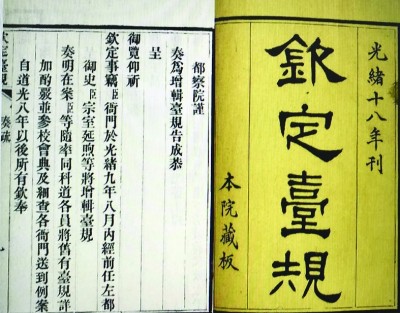 光緒十八年刊
欽定臺規
本院藏板
都察院謹
奏爲增輯臺規告成恭
呈
御覽仰祈
欽定事竊臣衙門於光緒九年八月內經前任左都
御史臣宗室延煦等將增輯臺規
奏明在案臣等隨率同科道各員將舊有臺規詳
加酌覈並參校會典及細查各衙門送到例案
自道光八年以後所有欽奉
欽定臺規
奏疏